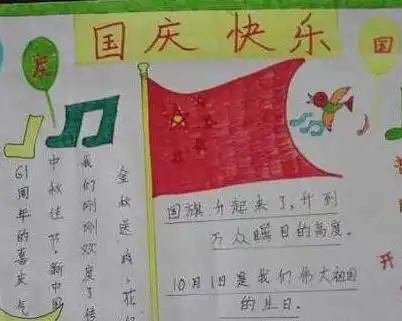 国庆快乐
庆
国
金秋送爽,花
我们刚刚欢度了传
中秋佳节,新中国
61周年的喜庆气
国旗升起来了,升到
万众瞩目的高度。
10月1日是我们伟大祖国
的生日。
开